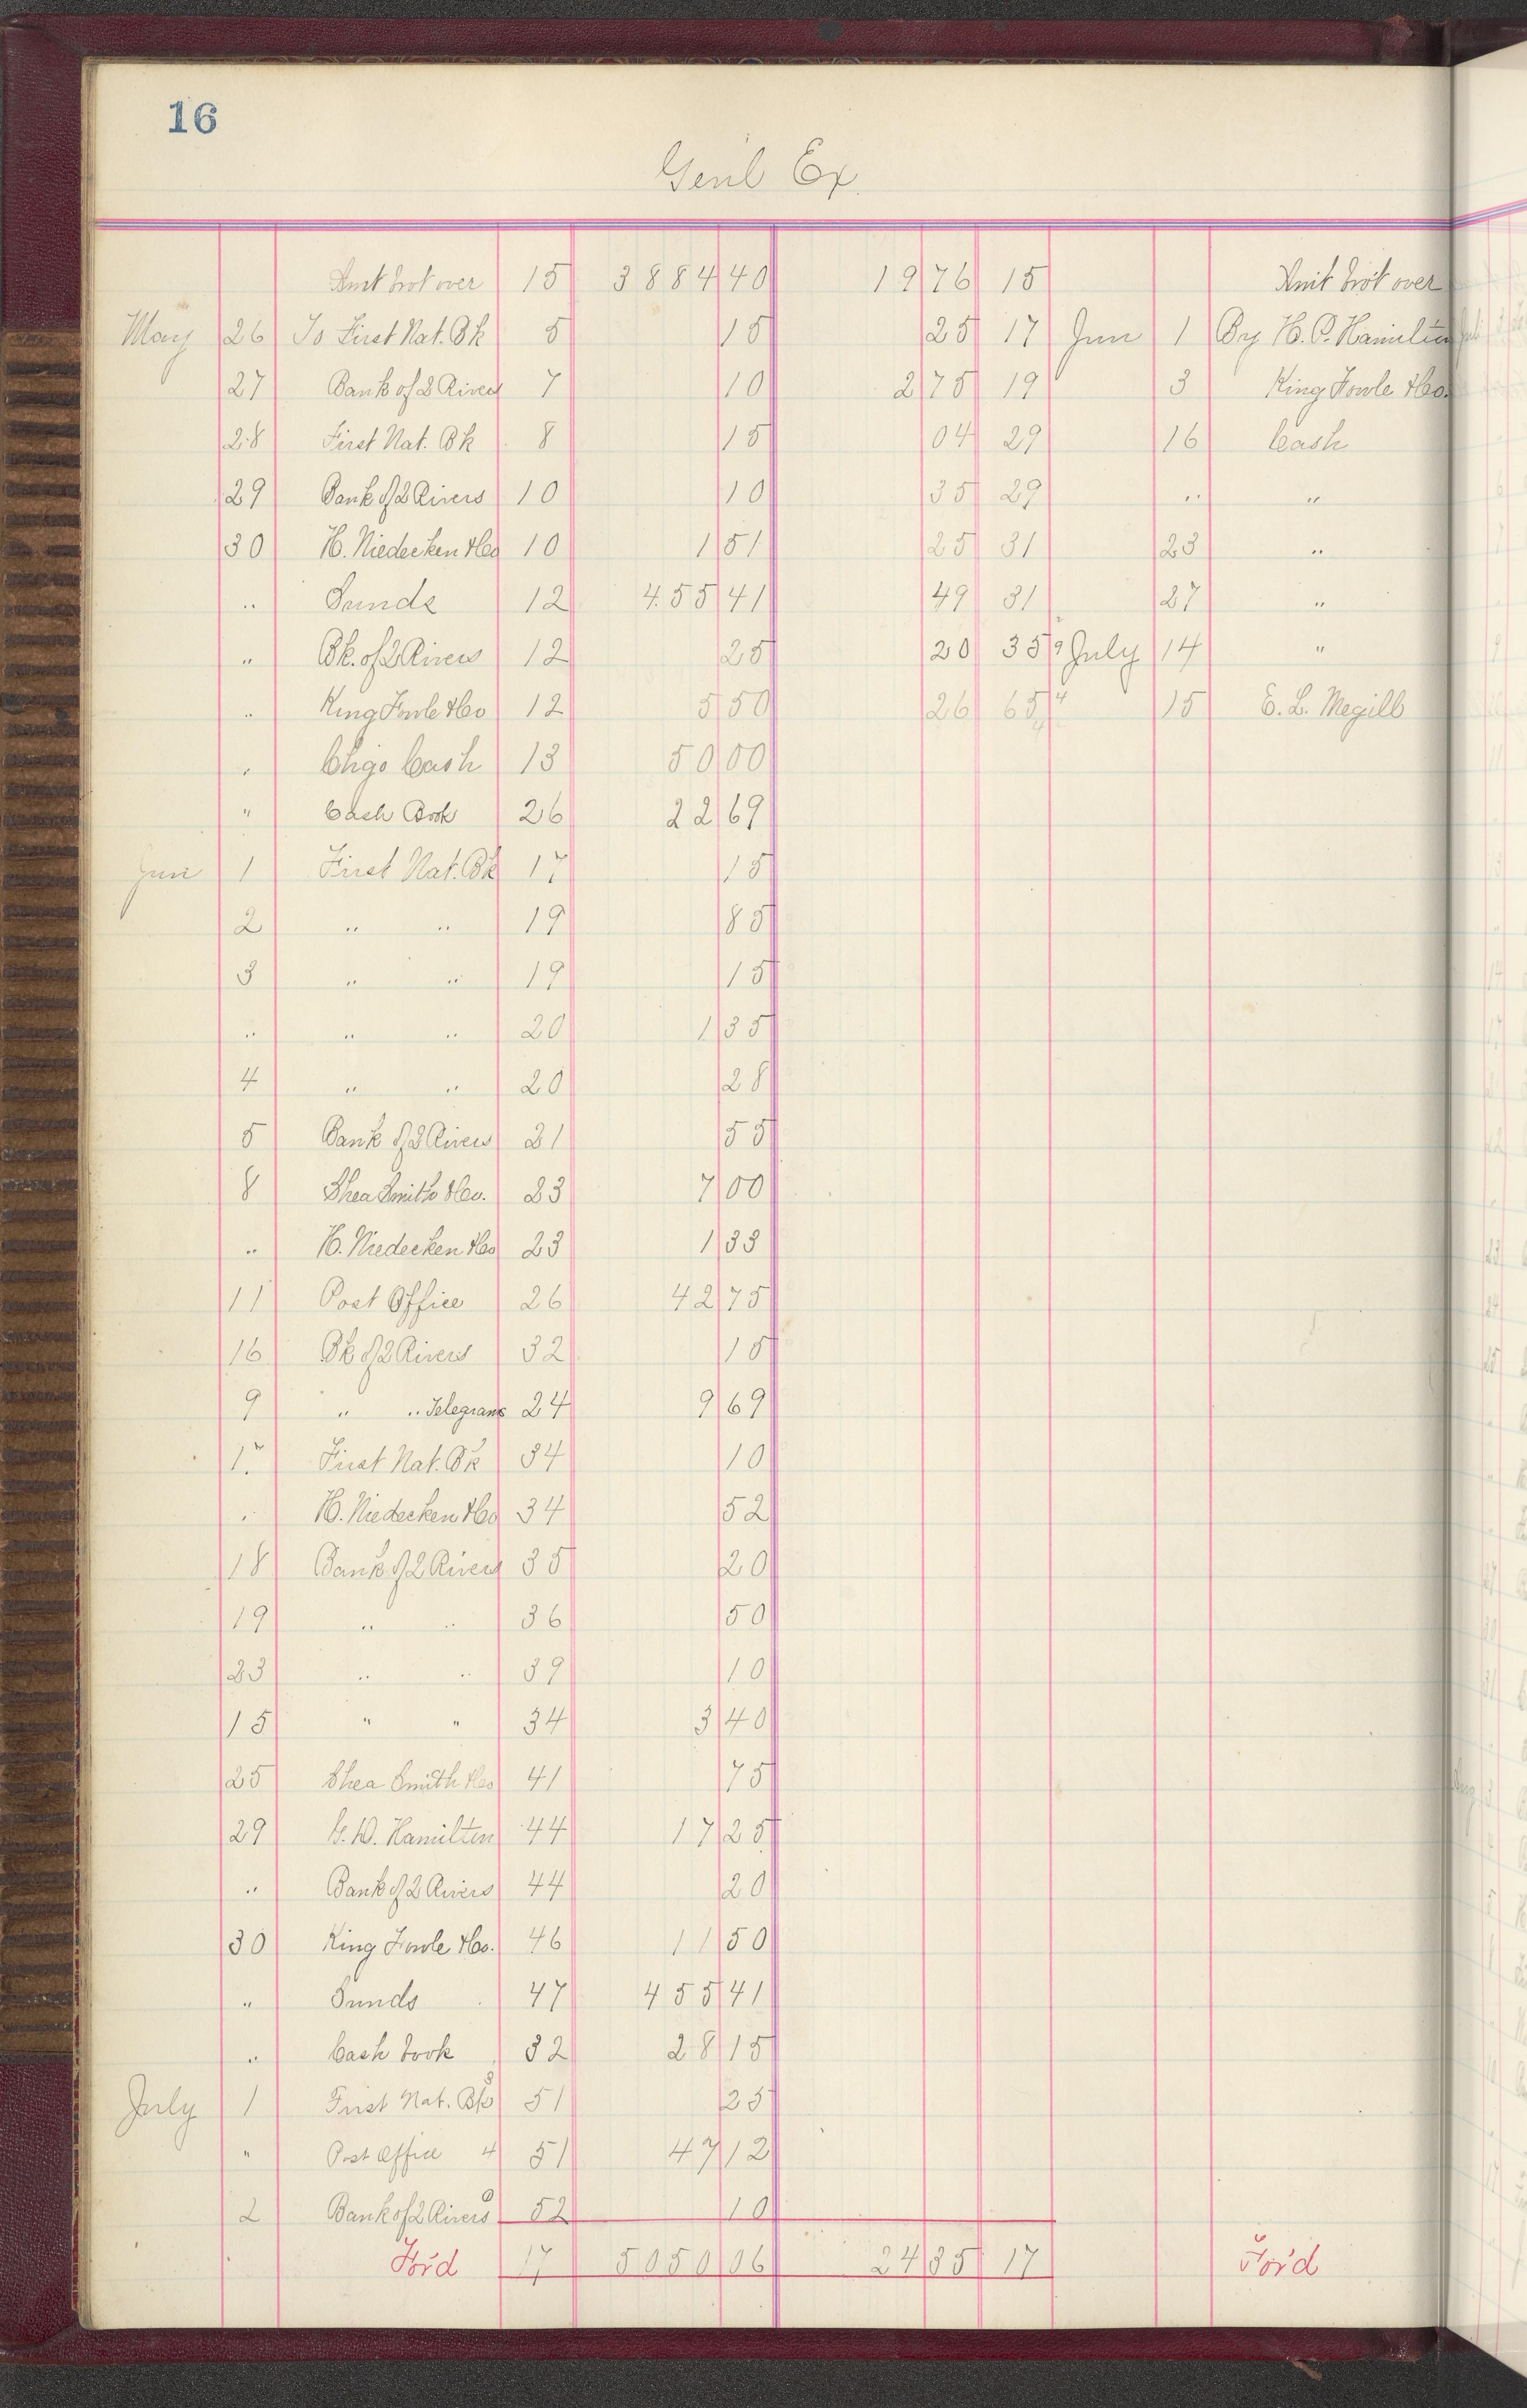 16
Genl Ex.
Amt brot over 15 3884 40 19 76 15 Amt brot over
May 26 To First Nat. Bk 5 15 25 17 Jun 1 By H. P. Hamilton
27 Bank of 2 Rivers 7 10 2 75 19 3 King Fowle & Co.
28 First Nat. Bk 8 15 04 29 16 Cash
29 Bank of 2 Rivers 10 10 35 29 " "
30 H. Niedecken & Co 10 1 51 25 31 23 "
" Sunds 12 455 41 49 31 27 "
" Bk. of 2 Rivers 12 25 20 35 9 July 14 "
" King Fowle & Co 12 5 50 26 65 4 15 E. L. Megill
" Chgo Cash 13 50 00
" Cash Book 26 22 69
June 1 First Nat. Bk 17 15
2 " " 19 85
3 " " 19 15
" " " 20 1 35
4 " " 20 28
5 Bank of 2 Rivers 21 55
8 Shea Smith & Co. 23 7 00
" H. Niedecken & Co 23 1 33
11 Post Office 26 42 75
16 Bk of 2 Rivers 32 15
9 " " Telegrams 24 9 69
1 First Nat. Bk 34 10
" H. Niedecken & Co 34 52
18 Bank of 2 Rivers 35 20
19 " " 36 50
23 " " 39 10
15 " " 34 3 40
25 Shea Smith & Co 41 75
29 Hamilton 44 17 25
" Bank of 2 Rivers 44 20
30 King Fowle & Co. 46 11 50
" Sunds 47 455 41
" Cash book 32 28 15
July 1 First Nat. Bk 3 51 25
" Post Office 4 51 47 12
2 Bank of 2 Rivers 52 10
For'd 17 5050 06 24 35 17 For'd